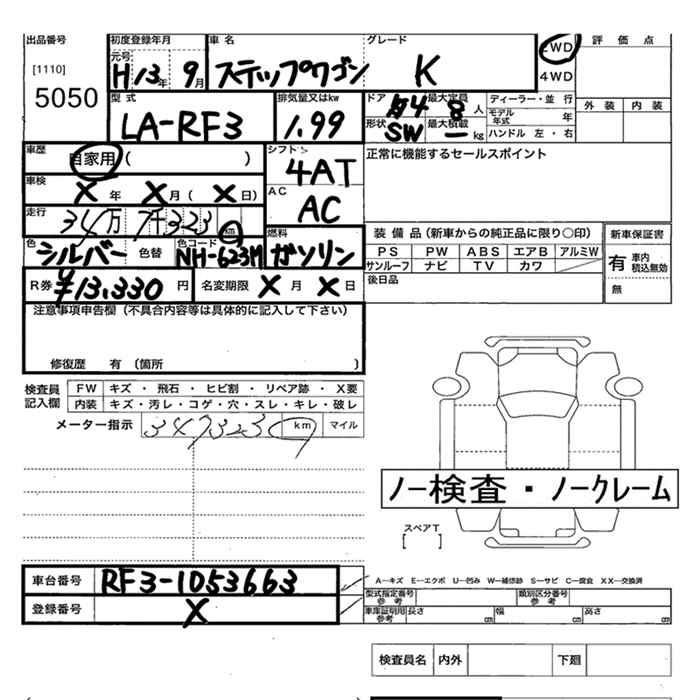 出品番号 初度登録年月 車名 グレード 2WD 評価点
[1110] 元号 H13年 9月 ステップワゴン K 4WD
5050 型式 排気量又はkw ドア 4 最大定員 8人 ディーラー・並行 外装 内装
LA-RF3 1.99 形状 SW 最大積載 ー kg モデル年式 年
ハンドル 左・右
車歴 自家用( ) シフト 4AT 正常に機能するセールスポイント
車検 X年 X月(X日) AC AC
走行 34万7千323 km 燃料 装備品(新車からの純正品に限り○印) 新車保証書
色 シルバー 色替 色コード NH-623M ガソリン PS PW ABS エアB アルミW 有 車内積込無効
サンルーフ ナビ TV カワ 無
R券 ¥13,330円 名変期限 X月 X日 後日品
注意事項申告欄(不具合内容等は具体的に記入して下さい)
修復歴 有(箇所 )
検査員記入欄 FW キズ・飛石・ヒビ割・リペア跡・X要
内装 キズ・汚レ・コゲ・穴・スレ・キレ・破レ
メーター指示 347323 km マイル
ノー検査・ノークレーム
スペアT
[ ]
車台番号 RF3-1053663 A—キズ E—エクボ U—凹み W—補修跡 S—サビ C—腐食 XX—交換済
登録番号 X 型式指定番号 参考 類別区分番号 参考
車庫証明用 参考 長さ cm 幅 cm 高さ cm
検査員名 内外 下廻